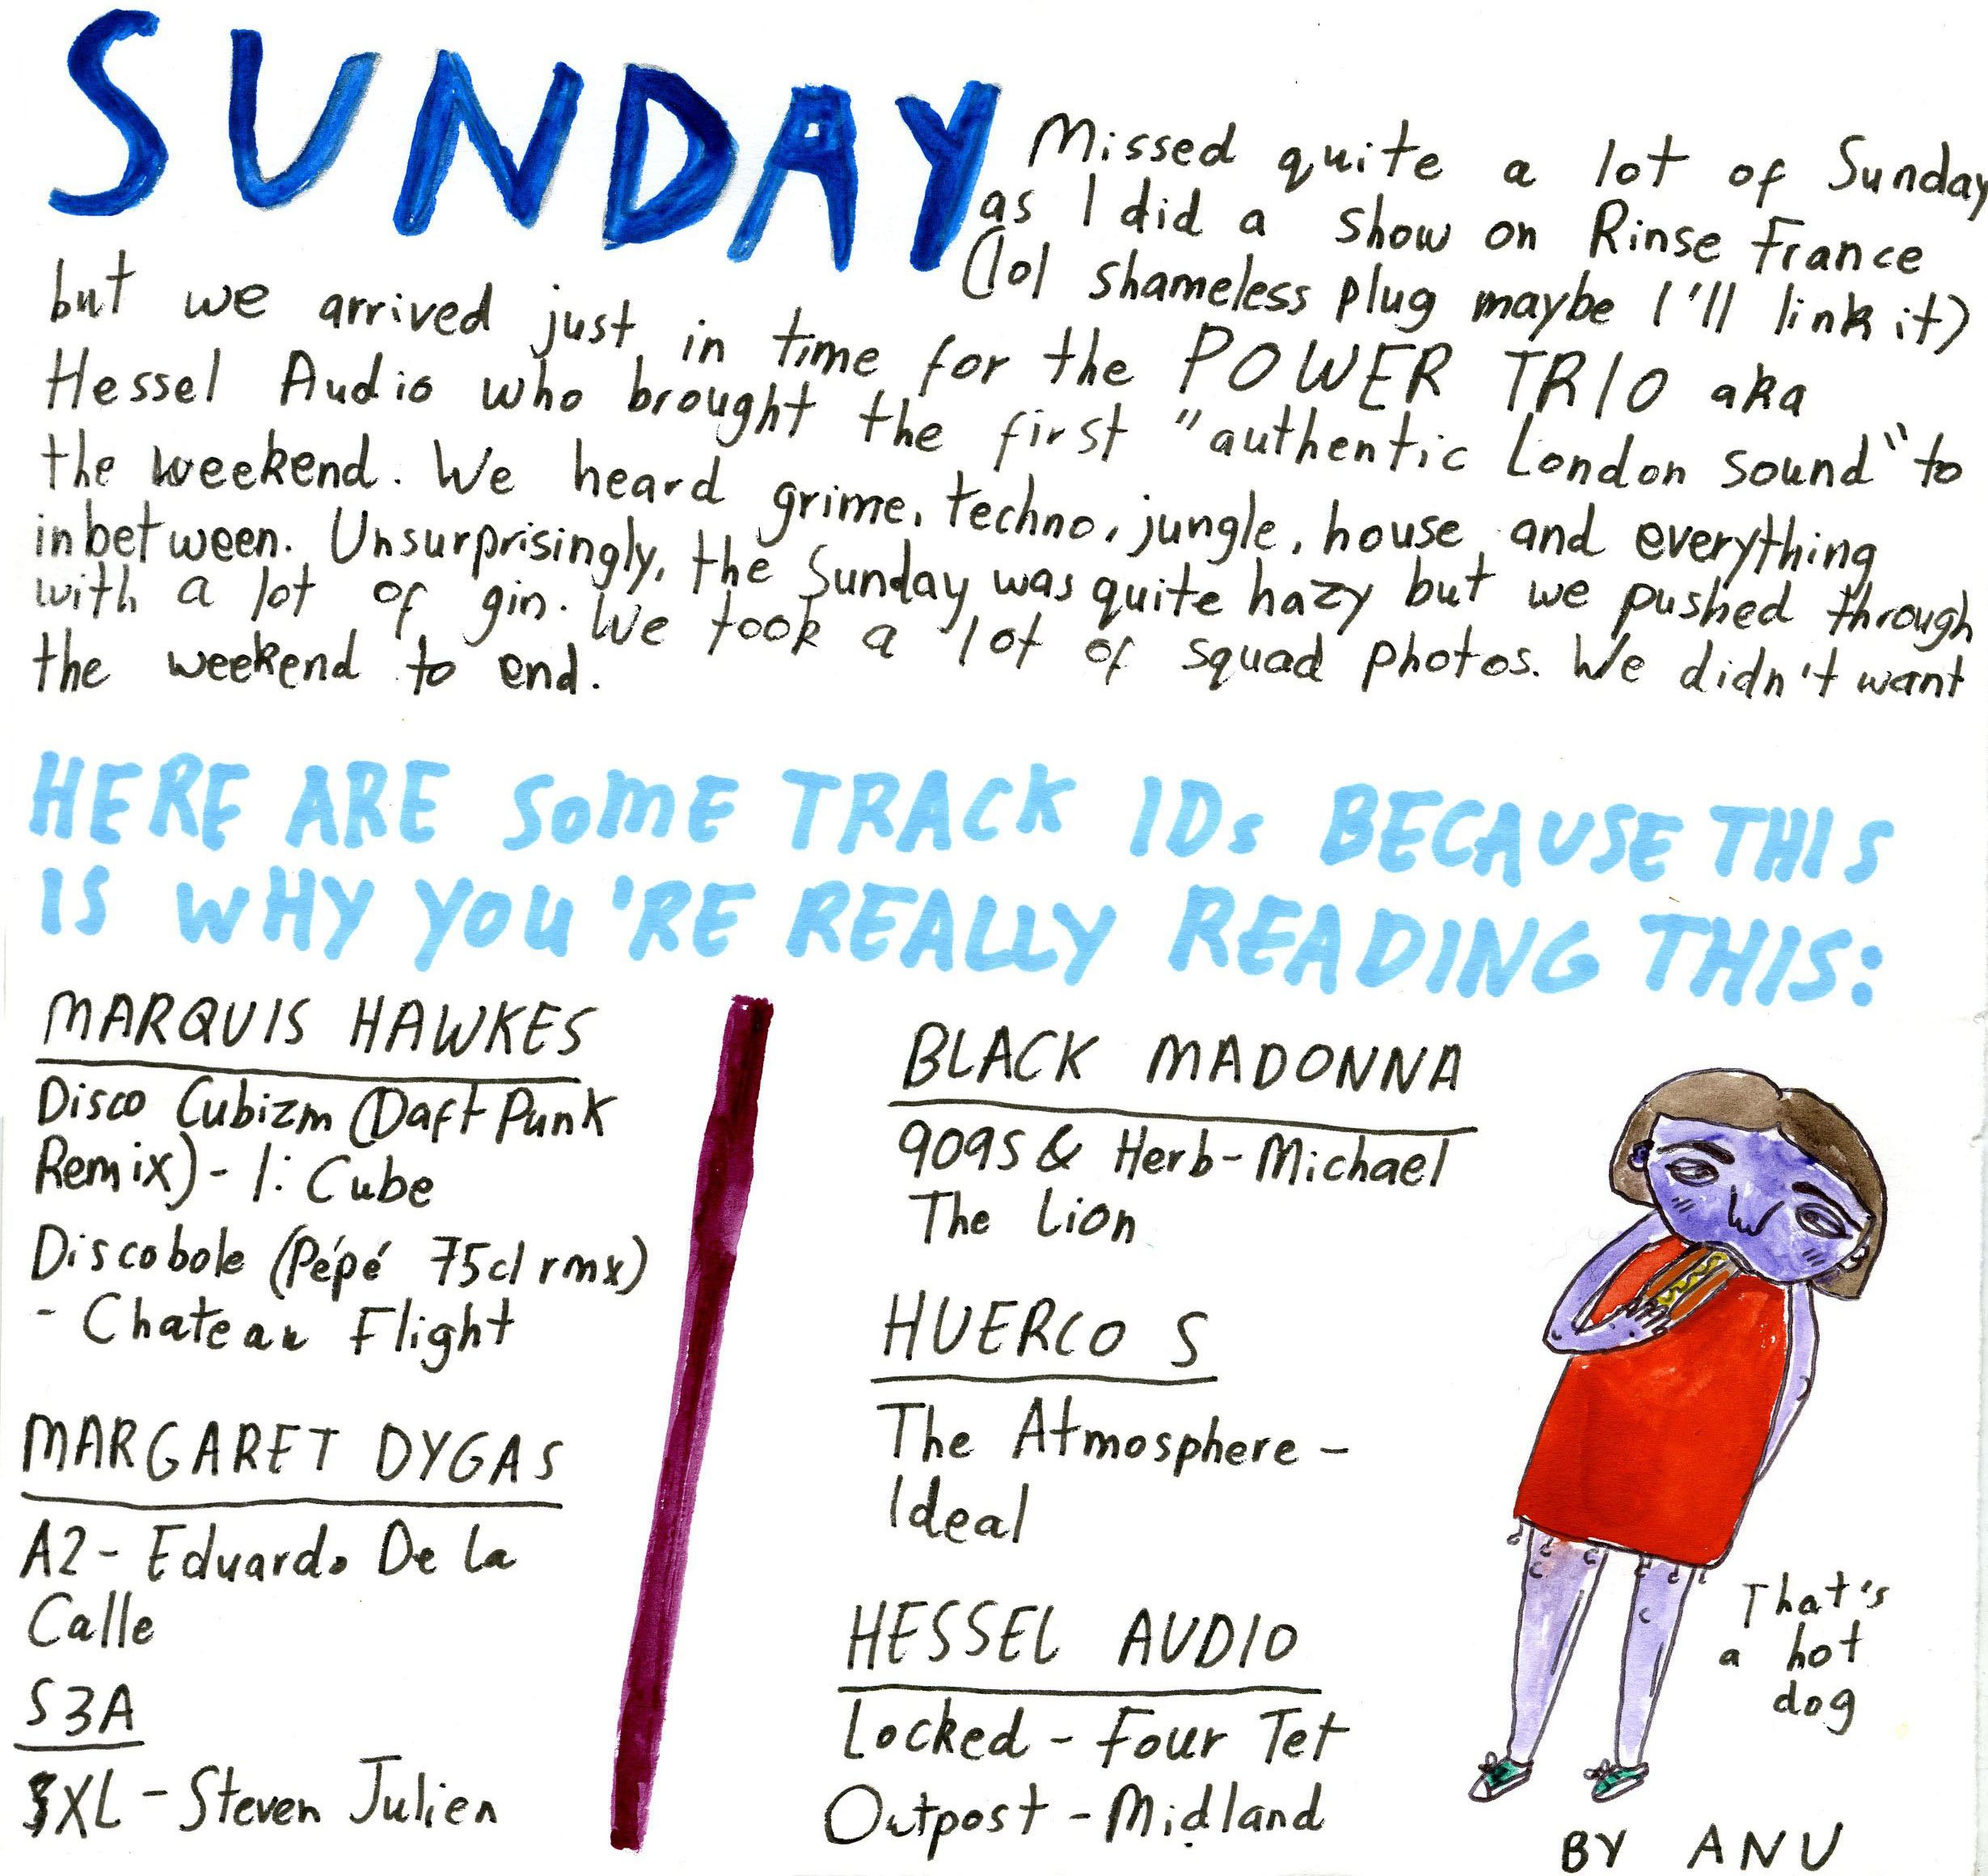 SUNDAY
Missed quite a lot of Sunday
as I did a show on Rinse France
(lol shameless plug maybe I'll link it)
but we arrived just in time for the POWER TRIO aka
Hessel Audio who brought the first "authentic London sound" to
the weekend. We heard grime, techno, jungle, house, and everything
inbetween. Unsurprisingly, the Sunday was quite hazy but we pushed through
with a lot of gin. We took a lot of squad photos. We didn't want
the weekend to end.
HERE ARE SOME TRACK IDs BECAUSE THIS
IS WHY YOU'RE REALLY READING THIS:
MARQUIS HAWKES
Disco Cubizm (Daft Punk
Remix) - I: Cube
Discobole (Pépé 75cl rmx)
- Chateau Flight
MARGARET DYGAS
A2 - Eduardo De La
Calle
S3A
XL - Steven Julien
BLACK MADONNA
909s & Herb - Michael
The Lion
HUERCO S
The Atmosphere -
Ideal
HESSEL AUDIO
Locked - Four Tet
Outpost - Midland
That's
a hot
dog
BY ANU